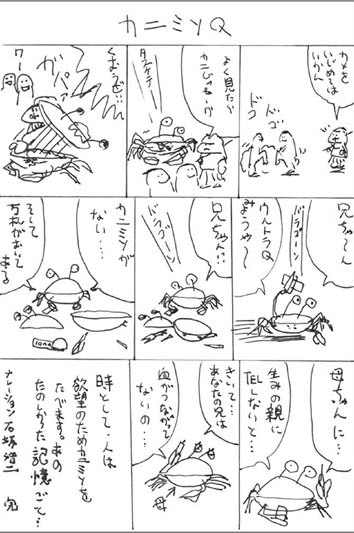 カニミソQ
カメを
いじめては
いかん
ドゴ
ドク
よく見たら
カニじゃねーか
タスケテー
くぼうぜ…
ガ
パァ
ワー
兄ちゃ〜ん
バラゴーン
ウルトラQ
みようや〜
兄ちゃん!?
バラゴーン
カニミソが
ない…
そして
万札がおいて
ある
10000
母ちゃんに…
生みの親に
TELしないと…
きいて…
あなたの兄は
血がつながって
ないの…
母
時として、人は
欲望のためカニミソを
たべます。あの
たのしかった記憶ごと…
ナレーション 石坂浩二
完